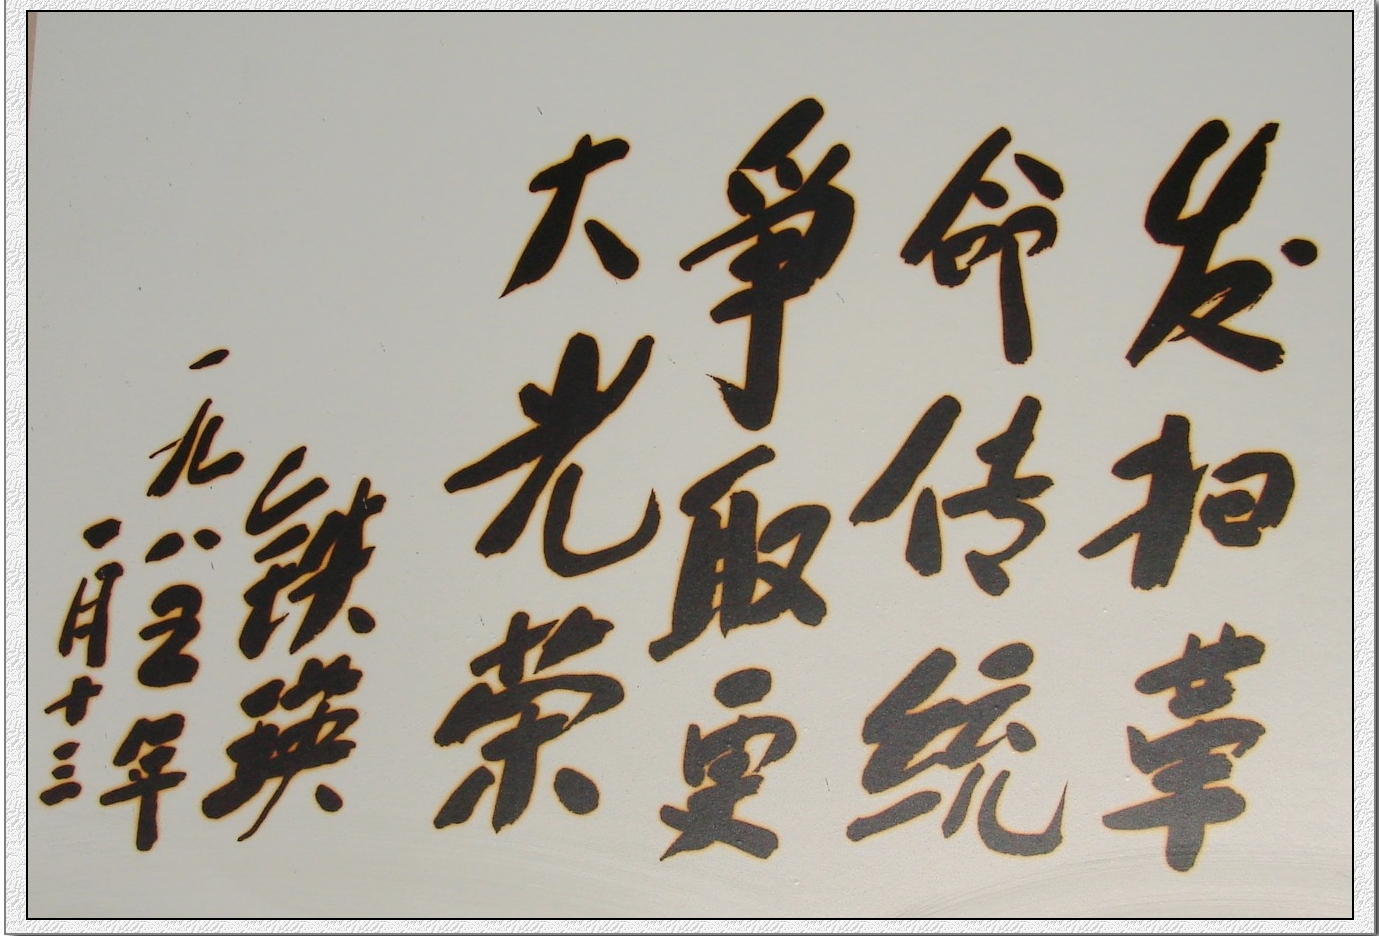 发扬革
命传统
爭取更
大光荣
铁瑛
一九八五年
一月十三